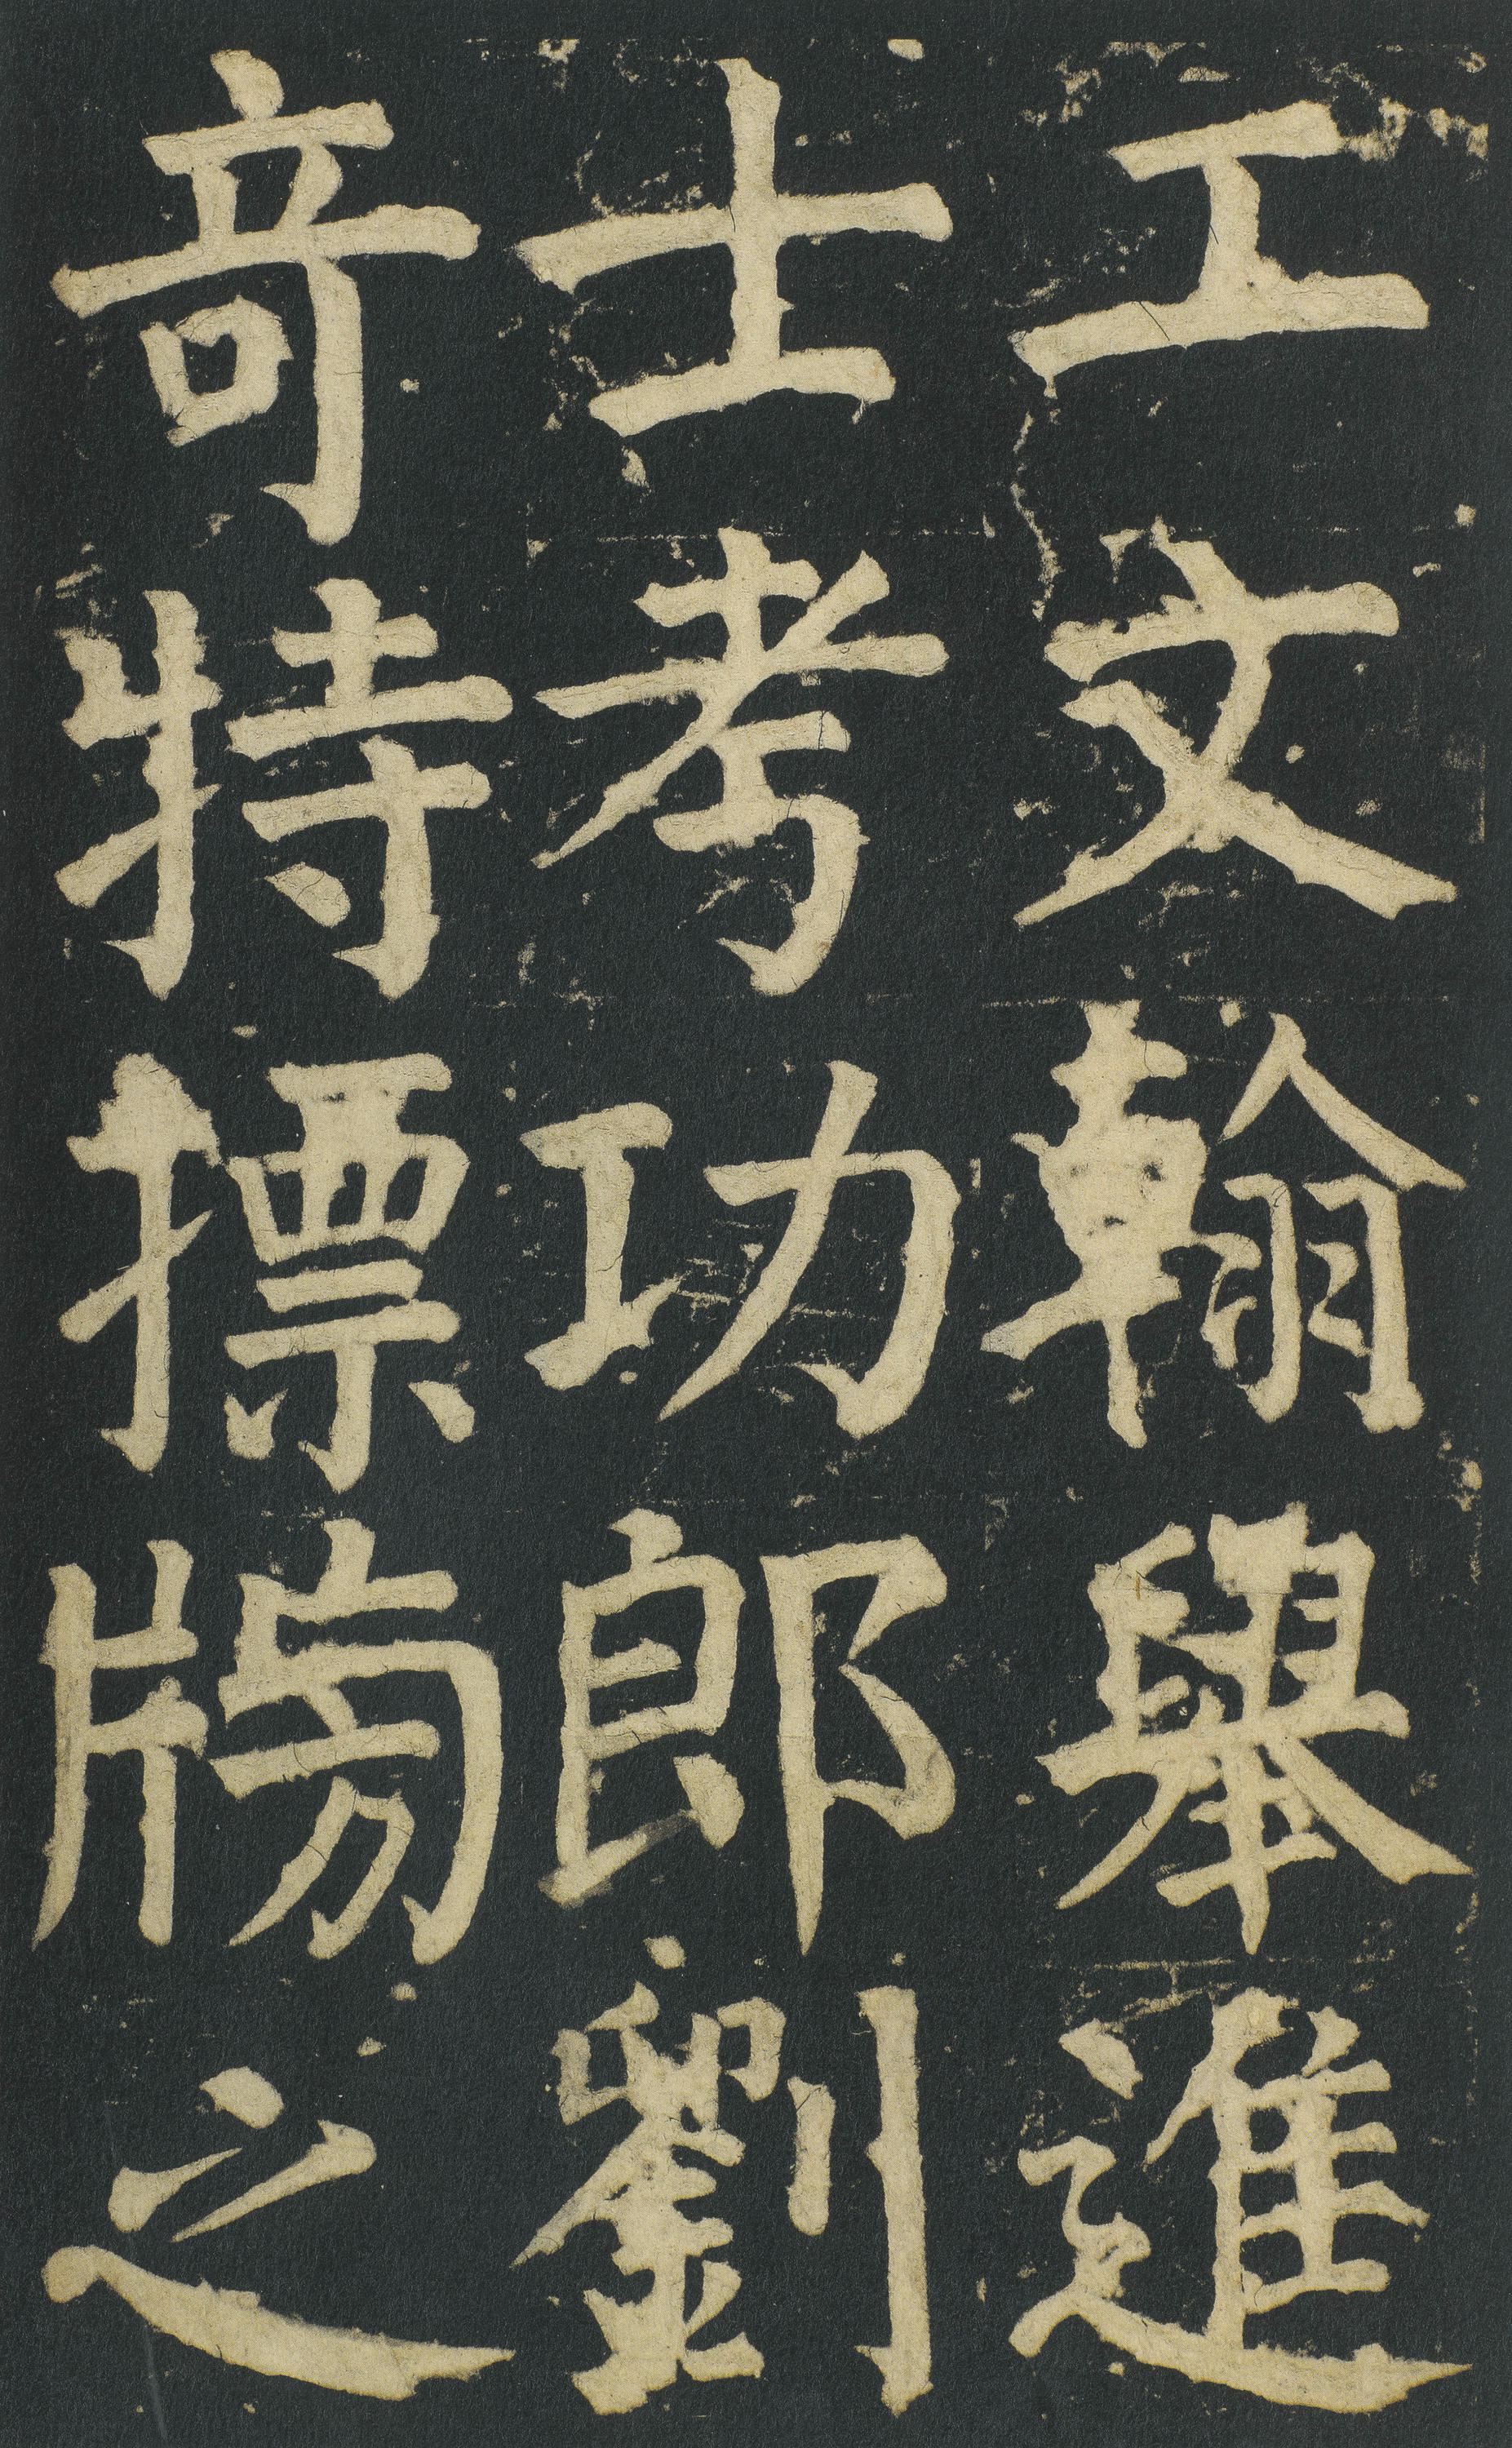 工文翰舉進
士考功郎劉
竒特摽牓之